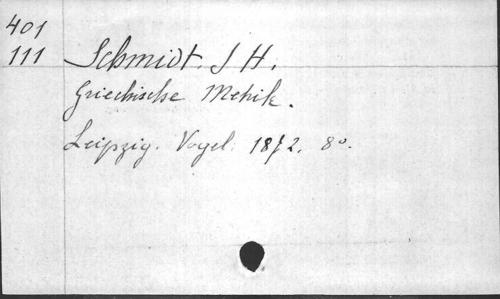 401
111
Schmidt. J H.
Griechische Metrik.
Leipzig. Vogel. 1872. 8°.